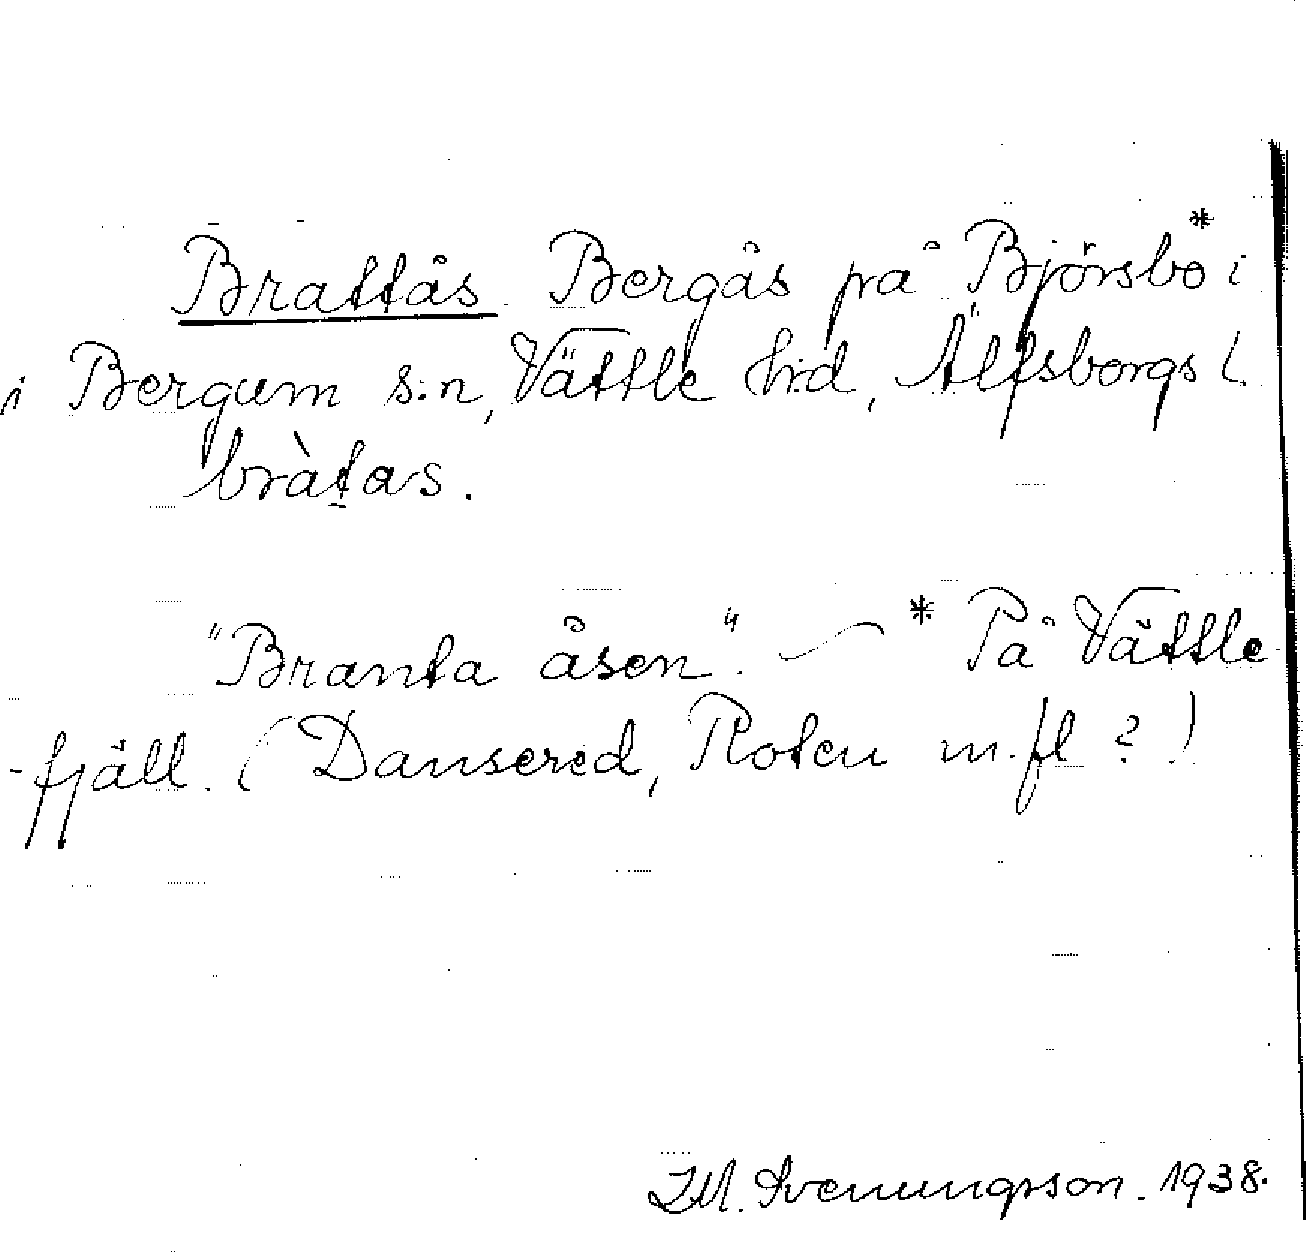 Brattås. Bergås på Björsbo* i
i Bergum s:n, Vättle h:d, Älfsborgs l.
bràtas.
"Branta åsen". — * På Vättle-
-fjäll. (Dansered, Roten m.fl ?)
Svenungsson. 1938.